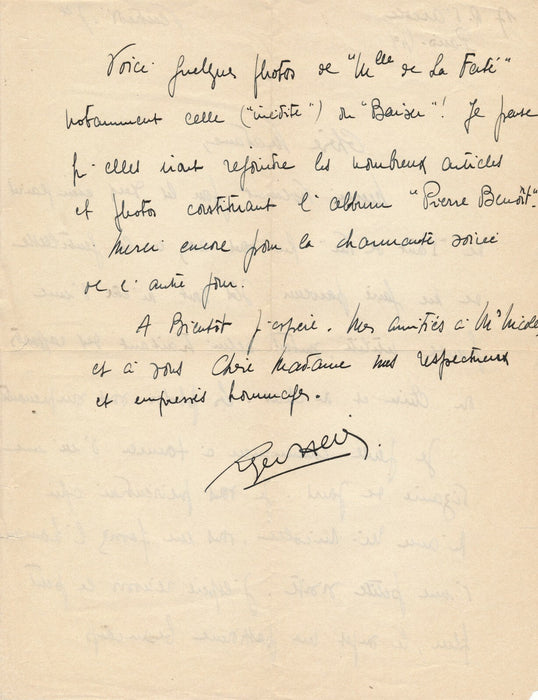 Voici quelques photos de "Mlle de La Ferté"
notamment celle ("inédite") du "Baiser"! Je pense
qu'elles iront rejoindre les nombreux articles
et photos constituant l'album "Pierre Benoît".
Merci encore pour la charmante soirée
de l'autre jour.
A Bientôt j'espère. Mes amitiés à Mr Nicolas
et à vous Chère Madame mes respectueux
et empressés hommages.